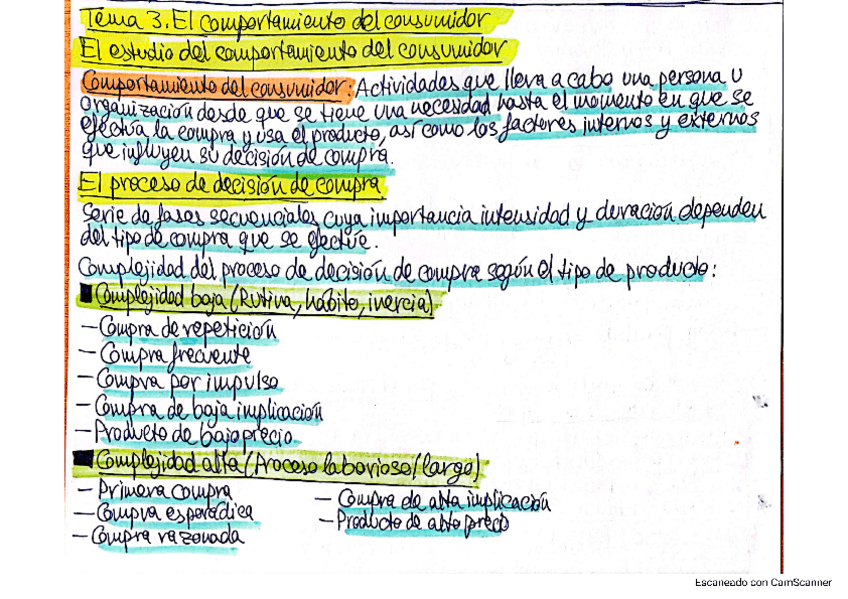 Tema 3. El comportamiento del consumidor
El estudio del comportamiento del consumidor
Comportamiento del consumidor: Actividades que lleva a cabo una persona u
organización desde que se tiene una necesidad hasta el momento en que se
efectúa la compra y usa el producto, así como los factores internos y externos
que influyen su decisión de compra.
El proceso de decisión de compra
Serie de fases secuenciales cuya importancia intensidad y duración dependen
del tipo de compra que se efectúe.
Complejidad del proceso de decisión de compra según el tipo de producto:
Complejidad baja (Rutina, hábito, inercia)
- Compra de repetición
- Compra frecuente
- Compra por impulso
- Compra de baja implicación
- Producto de bajo precio
Complejidad alta (Proceso laborioso/largo)
- Primera compra
- Compra esporádica
- Compra razonada
- Compra de alta implicación
- Producto de alto precio
Escaneado con CamScanner